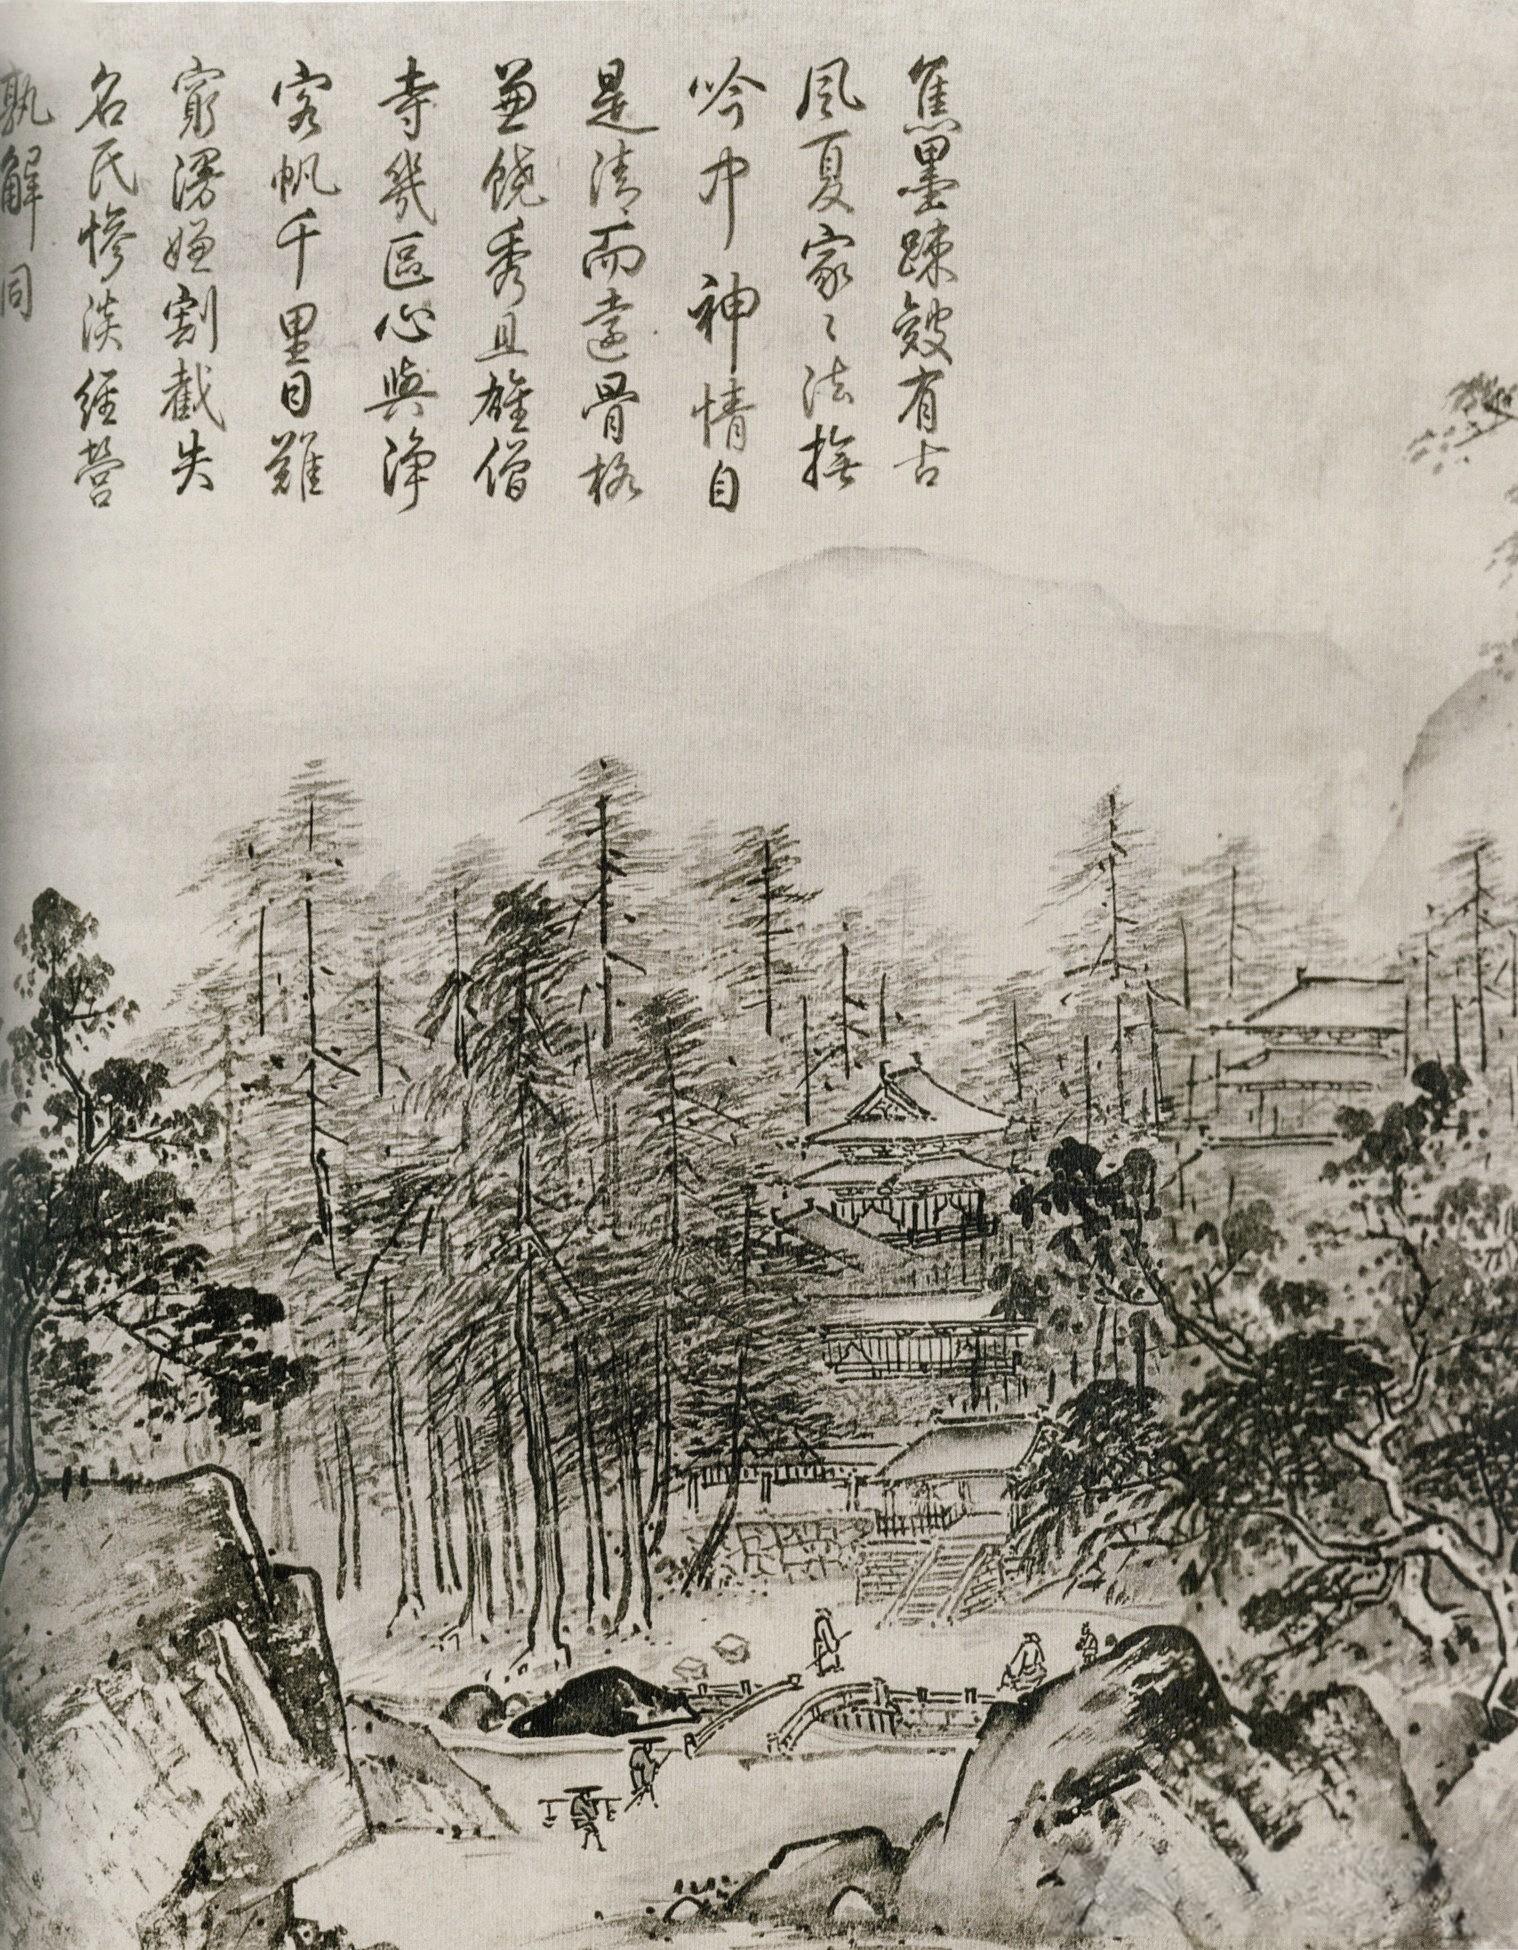 焦墨踈皴有古
風夏家〻法撫
吟中神情自
是清而遠骨格
兼饒秀且雄僧
寺幾區心與淨
客帆千里目難
窮漫嫌割截失
名氏慘淡經營
孰解同